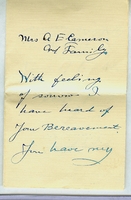 Mrs A E Cameron
and Family
With feeling
of sorrow I
have heard of
your Bereavement,
You have my